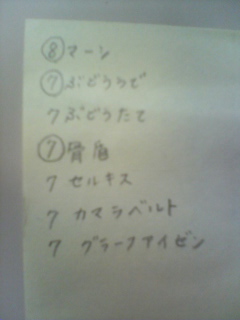 ⑧ マーン
⑦ ぶどううで
7 ぶどうたて
⑦ 骨盾
7 セルキス
7 カマラベルト
7 グラーフアイゼン